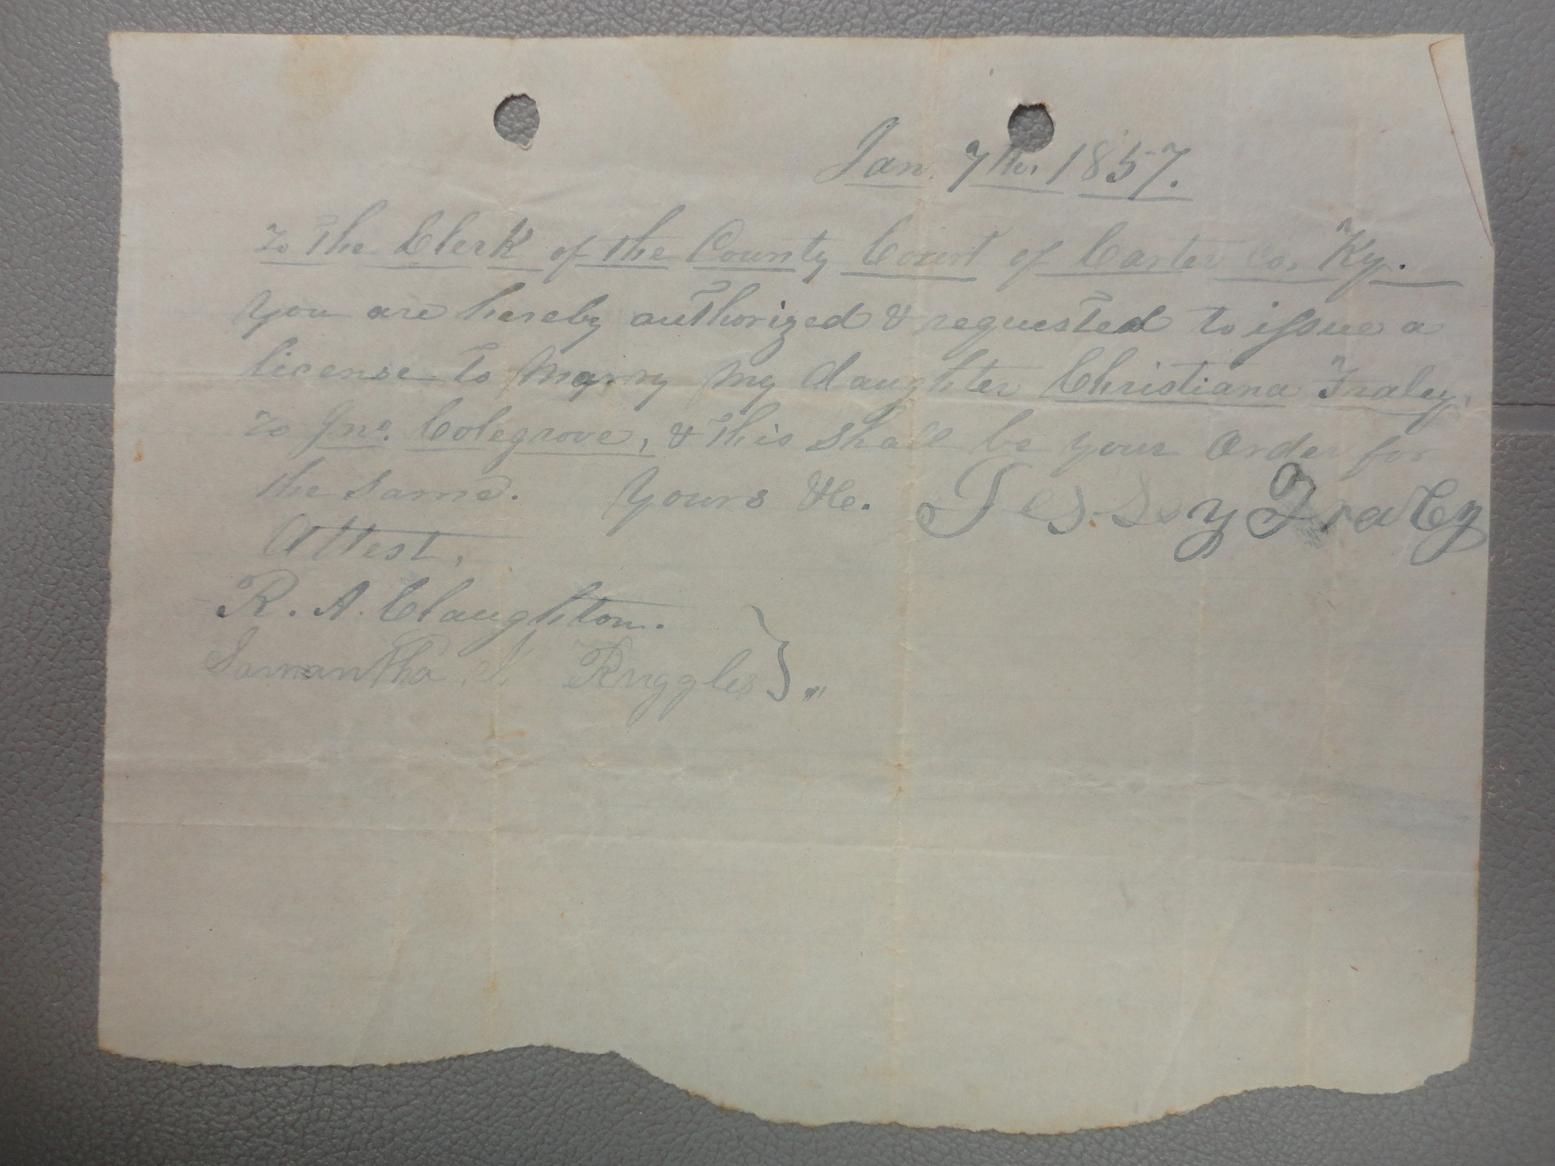 Jan. 7th, 1857.
To the Clerk of the County Court of Carter Co, Ky.
You are hereby authorized & requested to issue a
license to marry my daughter Christiana Fraley,
to Jno. Colegrove, & this shall be your order for
the same. Yours &c. Jessey Fraley
Attest,
R. A. Claughton.
Samantha Ruggles } "